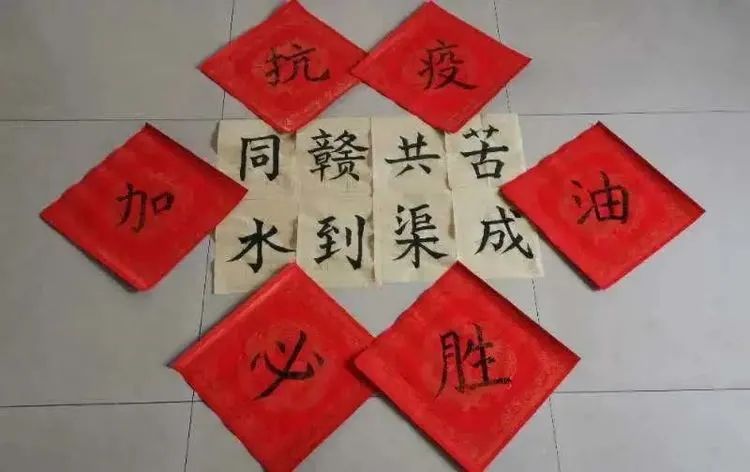 抗疫
同赣共苦
加油
水到渠成
必胜